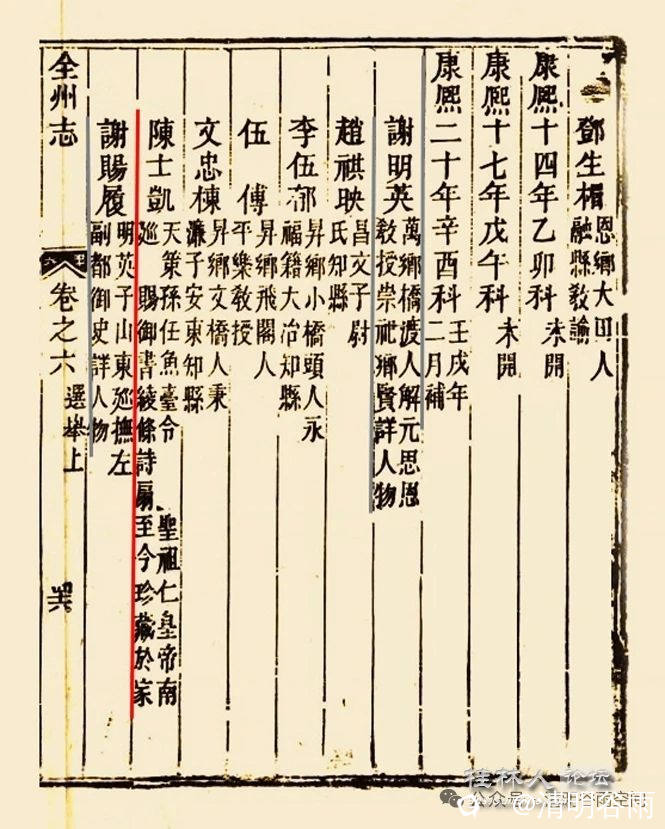 鄧生楣 恩鄉大田人
融縣教諭
康熙十四年乙卯科 未開
康熙十七年戊午科 未開
康熙二十年辛酉科 壬戌年
二月補
謝明英 萬鄉橋渡人解元思恩
教授崇祀鄉賢詳人物
趙祺映 昌文子 尉
氏知縣
李伍 昇鄉小橋頭人永
福籍大冶知縣
伍傅 昇鄉飛閣人
平樂教授
文忠棟 昇鄉文橋人秉
濂子安東知縣
陳士凱 天策孫任魚臺令 聖祖仁皇帝南
巡 賜御書綾條詩扇至今珍藏於家
謝賜履 明英子山東巡撫左
副都御史詳人物
全州志 卷之六 選舉上
桂林人论坛
公众号
@清明谷雨